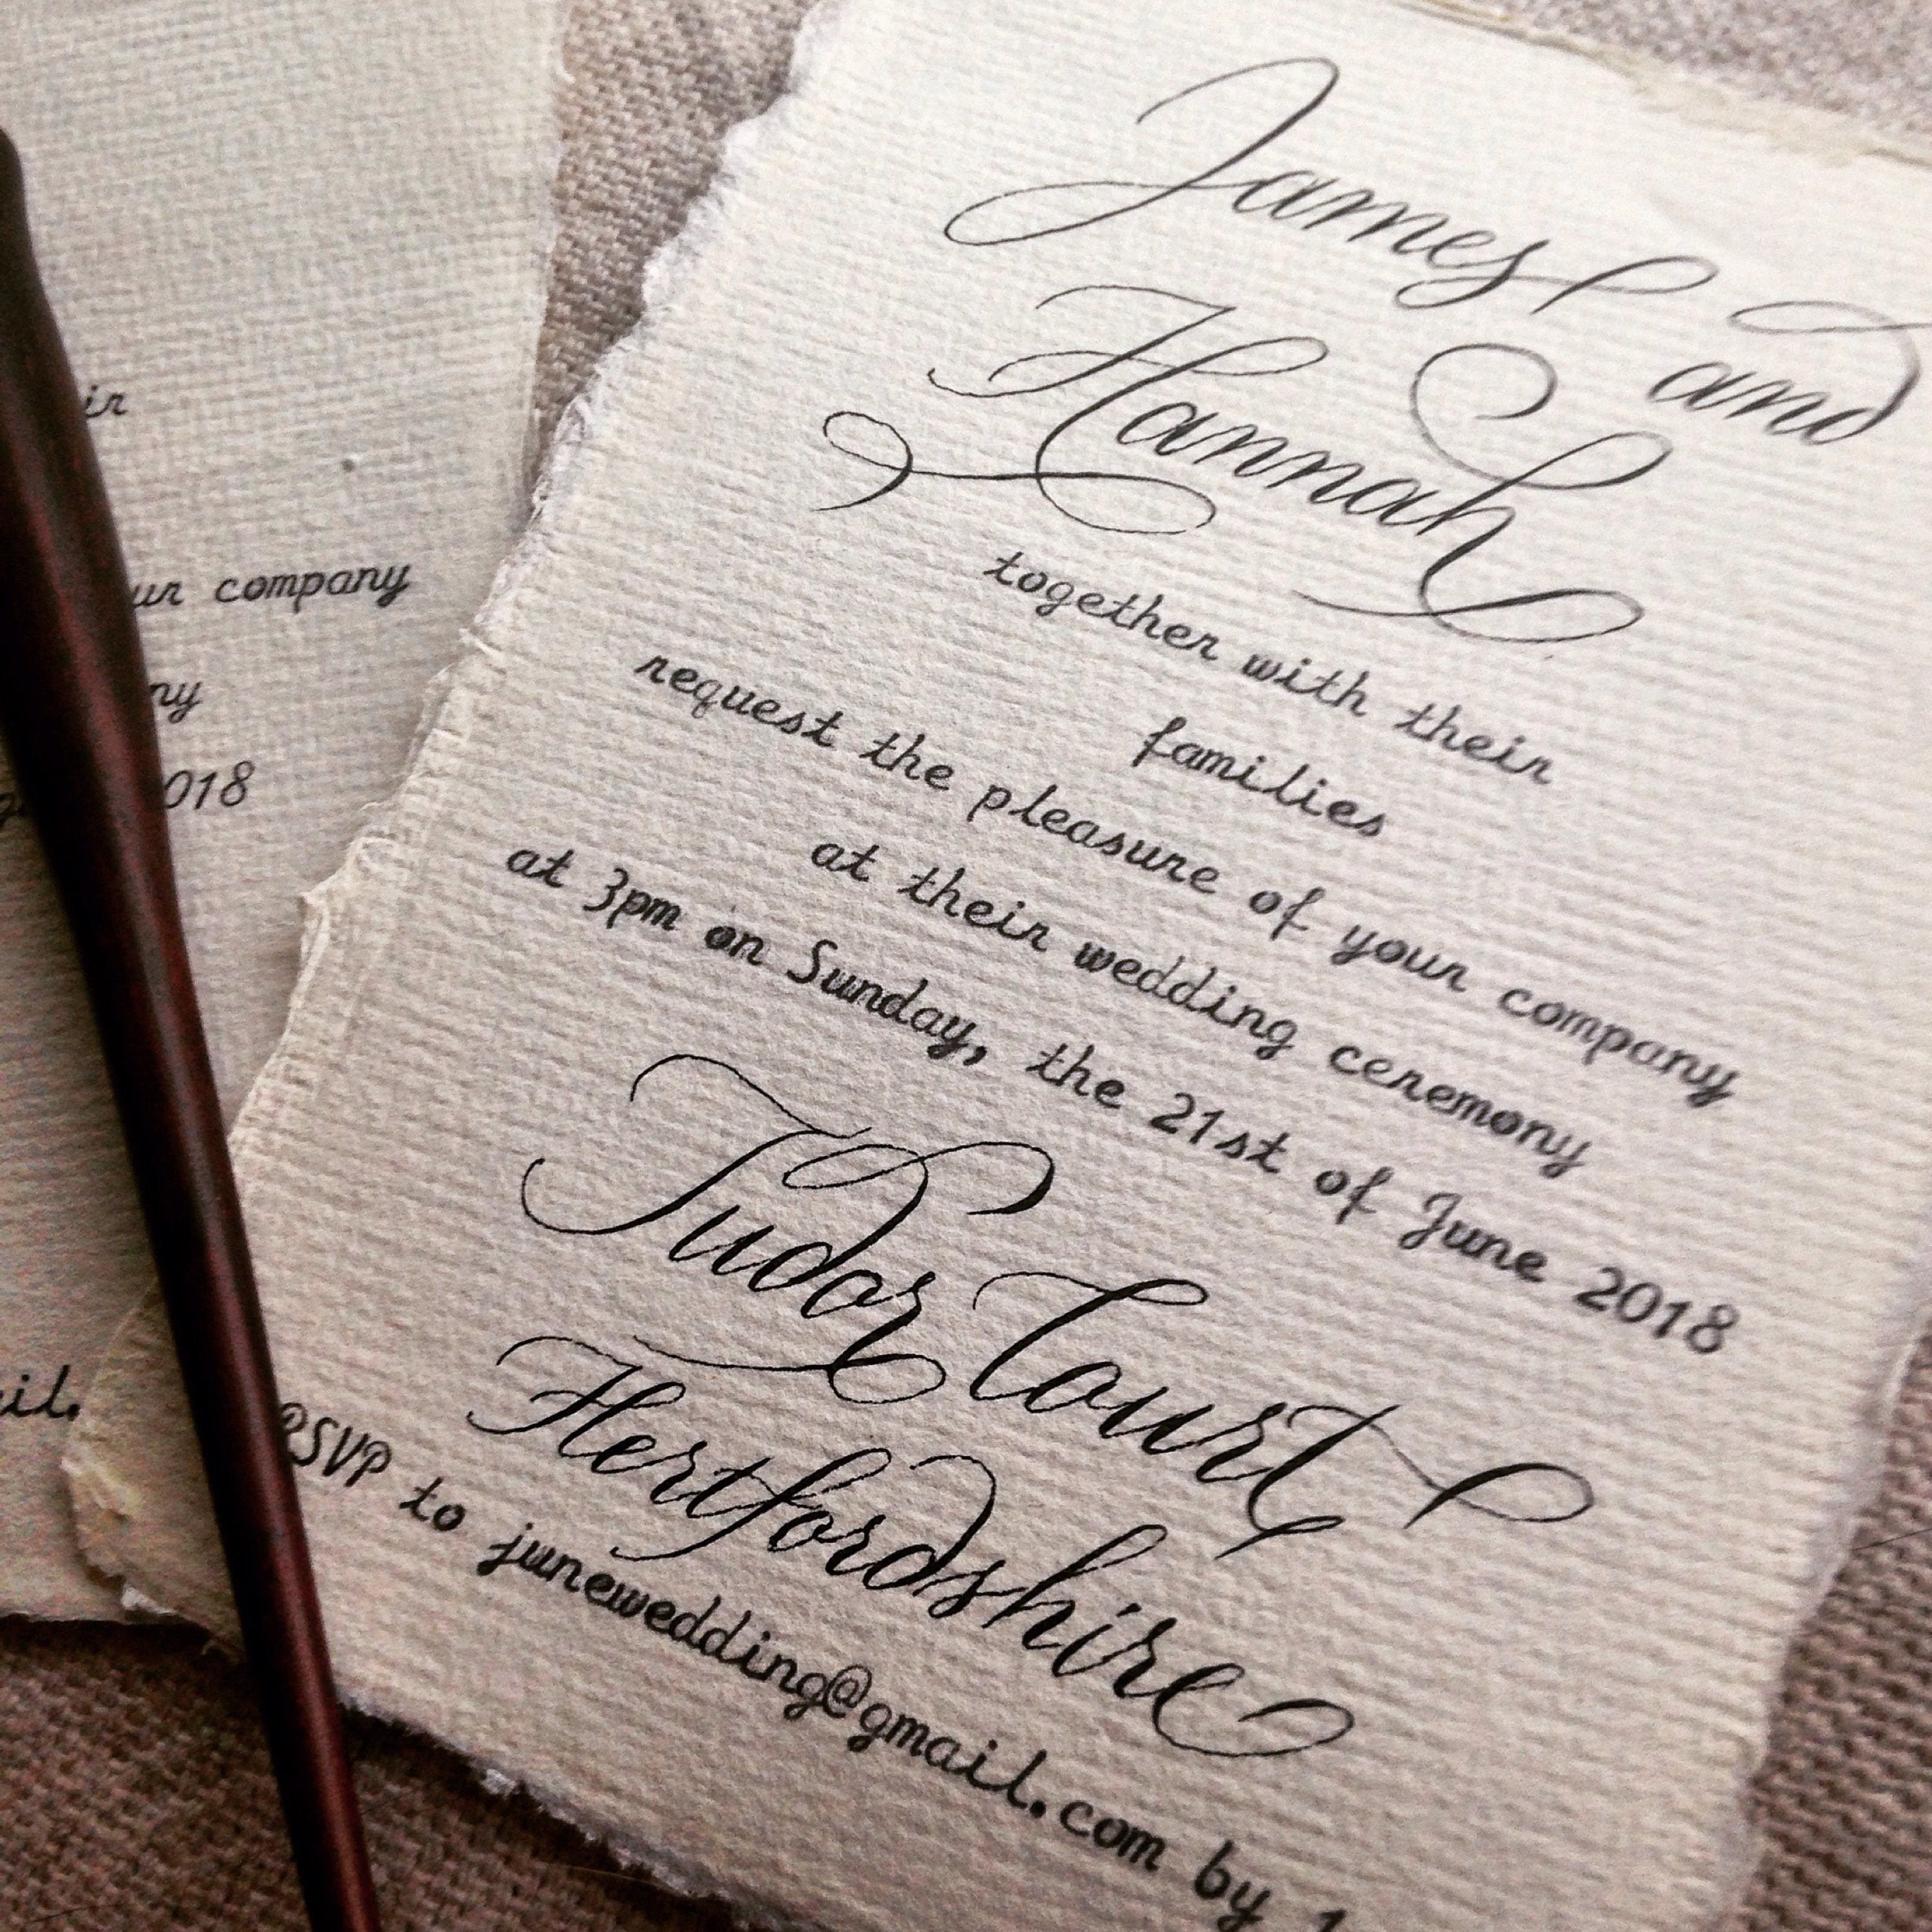 James and
Hannah
together with their
families
request the pleasure of your company
at their wedding ceremony
at 3pm on Sunday, the 21st of June 2018
Tudor Court
Hertfordshire
RSVP to junewedding@gmail.com by 1
ir
ur company
ny
018
il.